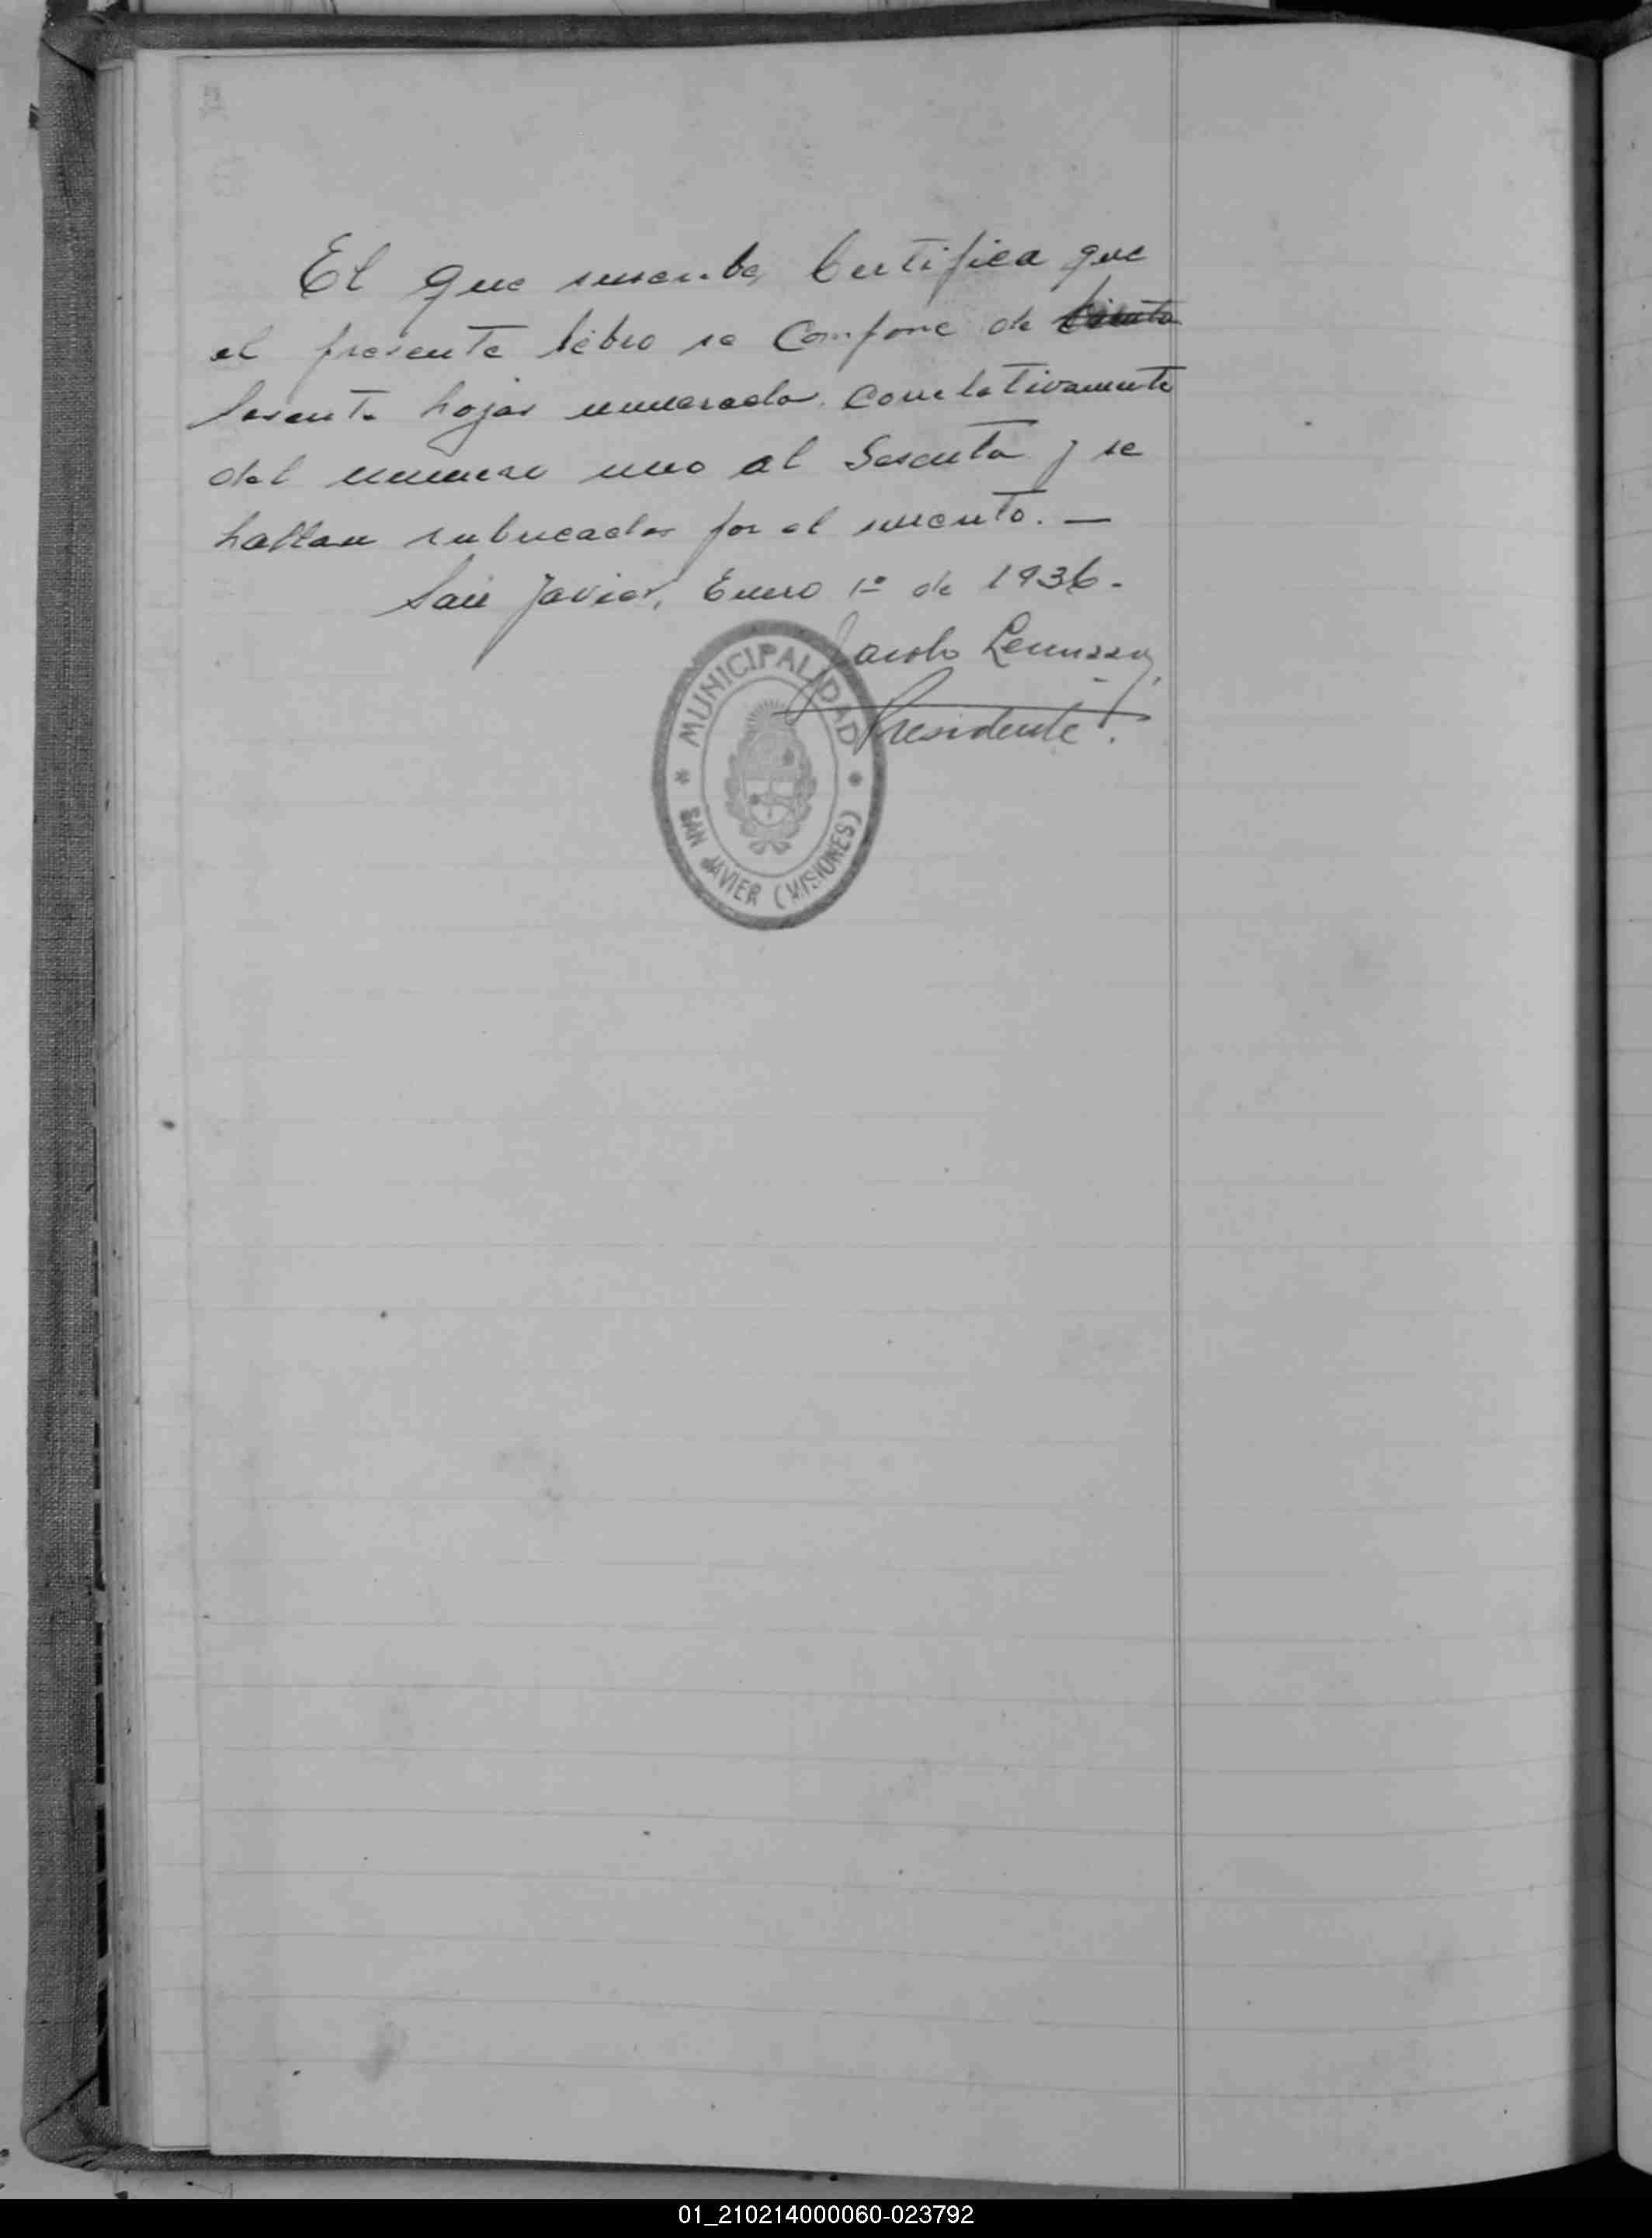 El que suscribe, Certifica que
el presente libro se compone de ciento
sesenta hojas numeradas correlativamente
del numero uno al Sesenta y se
hallan rubricadas por el suscrito. —
San Javier, Enero 1º de 1936.
Jacobo
Presidente.
MUNICIPALIDAD
SAN JAVIER (MISIONES)
01_210214000060-023792